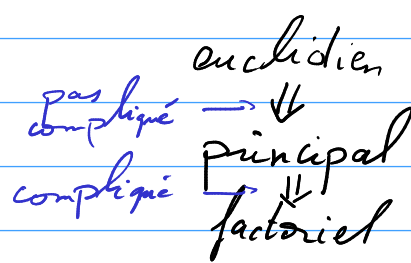 euclidien
pas
compliqué → ⇓
principal
compliqué → ⇓
factoriel